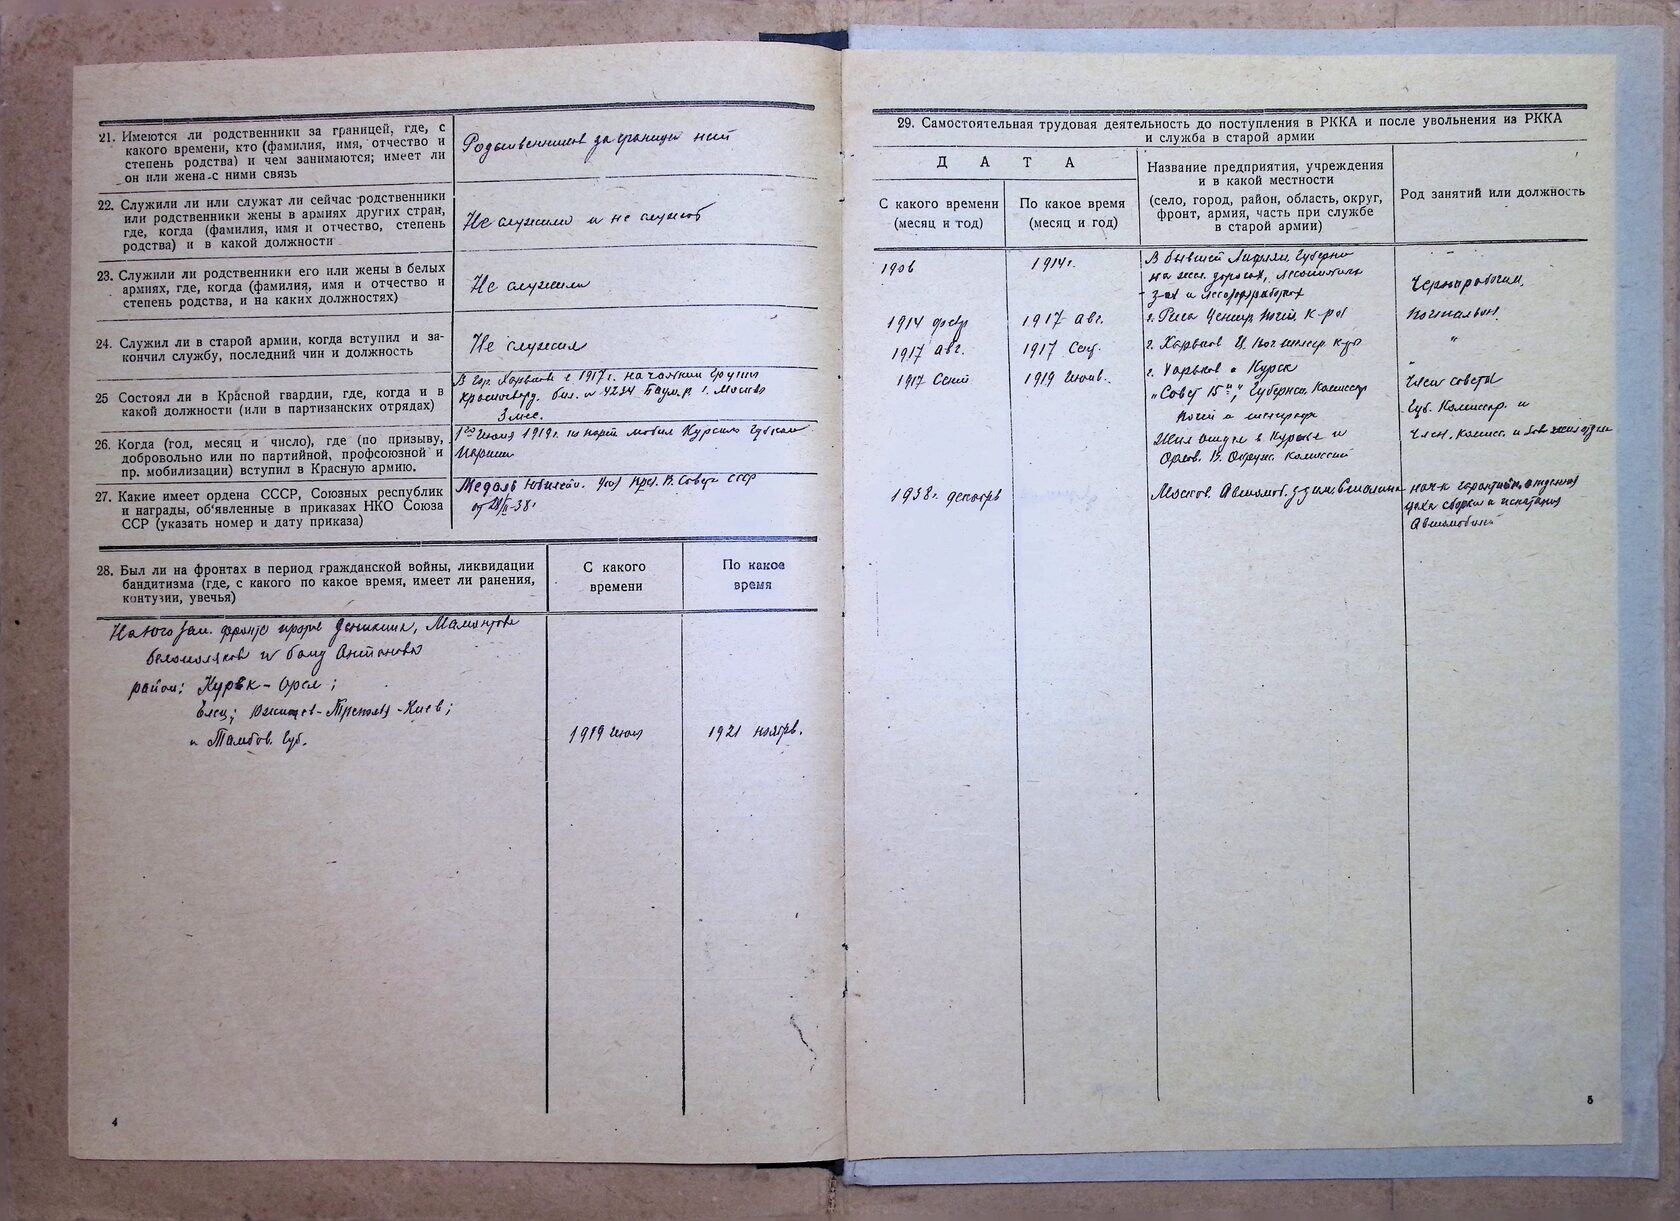 21. Имеются ли родственники за границей, где, с
какого времени, кто (фамилия, имя, отчество и
степень родства) и чем занимаются; имеет ли
он или жена с ними связь
Родственников за границей нет
22. Служили ли или служат ли сейчас родственники
или родственники жены в армиях других стран,
где, когда (фамилия, имя и отчество, степень
родства) и в какой должности
Не служили и не служат
23. Служили ли родственники его или жены в белых
армиях, где, когда (фамилия, имя и отчество и
степень родства, и на каких должностях)
Не служили
24. Служил ли в старой армии, когда вступил и за-
кончил службу, последний чин и должность
Не служил
25 Состоял ли в Красной гвардии, где, когда и в
какой должности (или в партизанских отрядах)
В гор. Харькове с 1917 г. начальник группы
Красногвард. бил. № 4234 Баум. р. г. Москва
3 мес.
26. Когда (год, месяц и число), где (по призыву,
добровольно или по партийной, профсоюзной и
пр. мобилизации) вступил в Красную армию.
1го Июня 1919 г. по парт мобил Курским Губком
Партии
27. Какие имеет ордена СССР, Союзных республик
и награды, об'явленные в приказах НКО Союза
ССР (указать номер и дату приказа)
Медаль Юбилейн. Указ През. В. Совета СССР
от II-38 г
28. Был ли на фронтах в период гражданской войны, ликвидации
бандитизма (где, с какого по какое время, имеет ли ранения,
контузии, увечья)
С какого
времени
По какое
время
На Юго зап. фронте против Деникина, Мамонтова
белополяков и банд Антонова
район: Курск - Орел;
Елец; Ржищев - Триполье - Киев;
и Тамбов. Губ.
1919 июн
1921 ноябрь.
4
29. Самостоятельная трудовая деятельность до поступления в РККА и после увольнения из РККА
и служба в старой армии
ДАТА
С какого времени
(месяц и год)
По какое время
(месяц и год)
Название предприятия, учреждения
и в какой местности
(село, город, район, область, округ,
фронт, армия, часть при службе
в старой армии)
Род занятий или должность
1906
1914 г.
В бывшей Лифлян. Губерни
на жел. дорогах, лесопильных
з-дах и лесоразработках
Чернорабочим.
1914 февр
1917 авг.
г. Рига Центр. почт. к-ра
почтальон.
1917 авг.
1917 Сент.
г. Харьков
"
1917 Сент
1919 Июнь.
г. Харьков и Курск
"
"Совет 15и", Губернск. Комиссар
Член совета
почт и телеграфа
Губ. Комиссар. и
в Курске и
Член. Комисс. и
Орлов. В. Окружн. комиссий
1938 г. декабрь
Москов. Автомоб. з-д им. Сталина
нач-к гарантийн. отделения
цеха сборки и испытания
Автомобилей
5